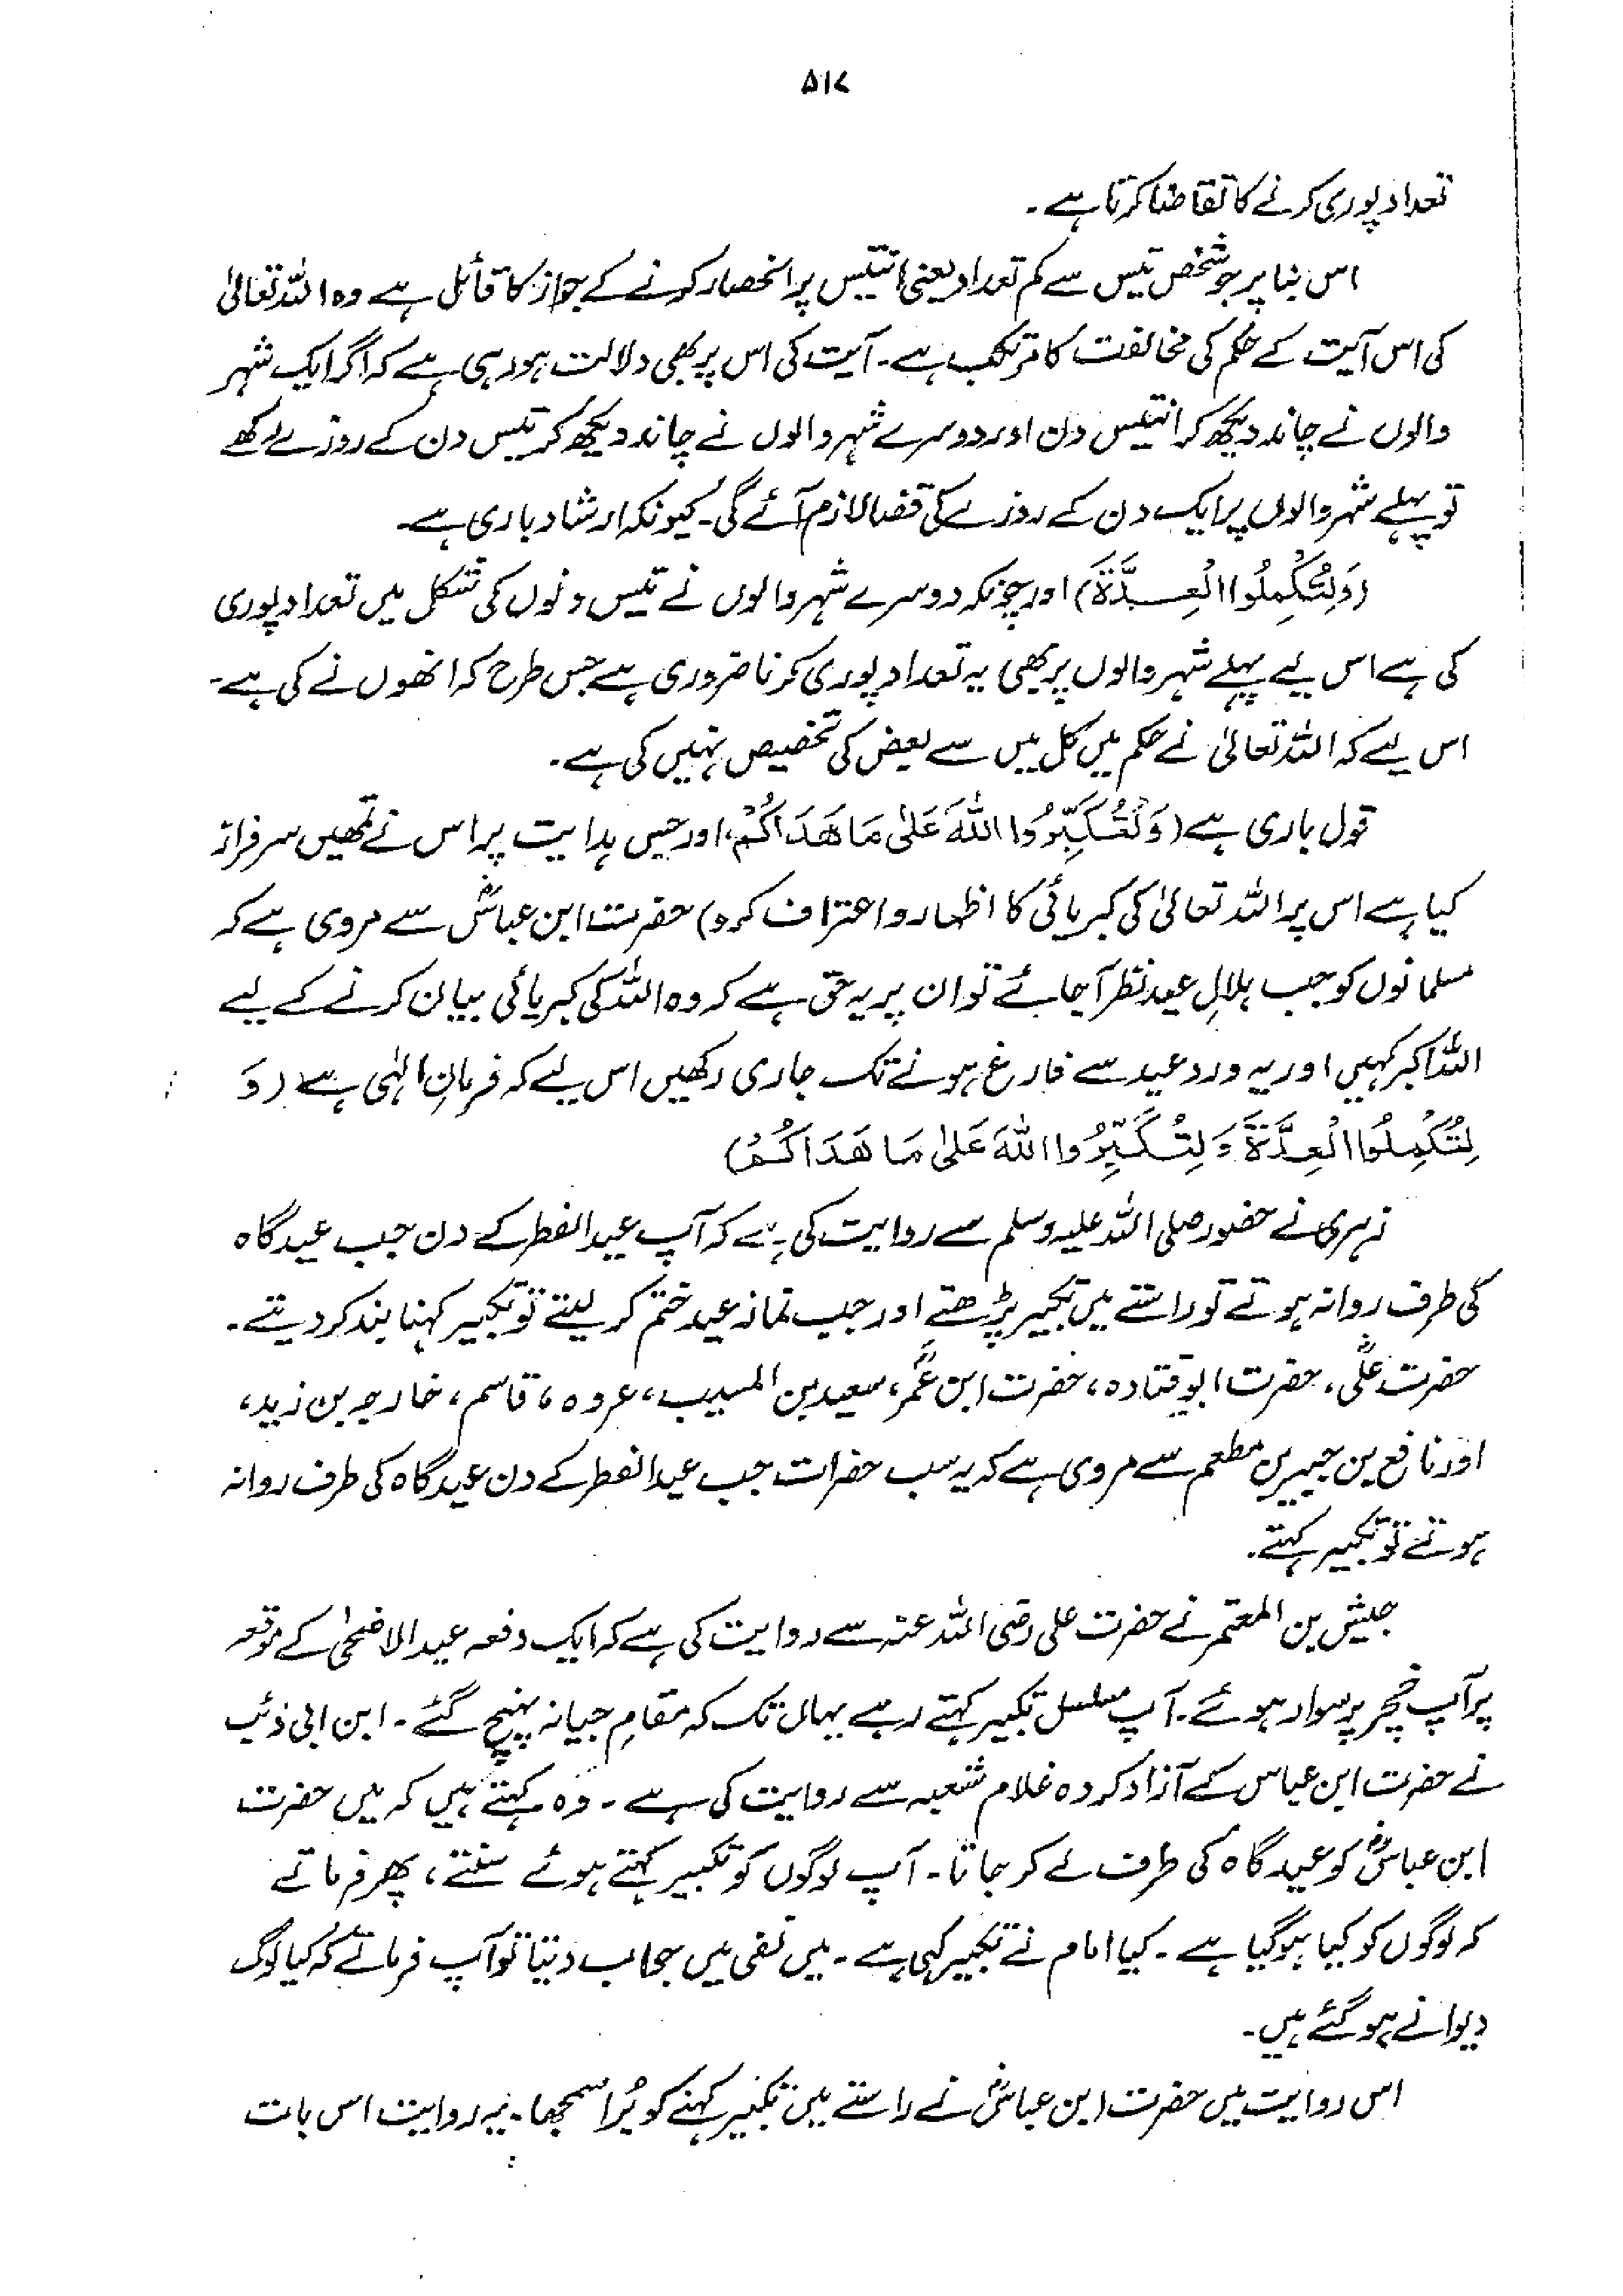 ۵۱۷
تعداد پوری کرنے کا تقاضا کرتا ہے۔
اس بنا پر جو شخص تیس سے کم تعداد یعنی انتیس پر انحصار کرنے کے جواز کا قائل ہے وہ اللہ تعالیٰ
کی اس آیت کے حکم کی مخالفت کا مرتکب ہے۔ آیت کی اس پر بھی دلالت ہو رہی ہے کہ اگر ایک شہر
والوں نے چاند دیکھ کر انتیس دن اور دوسرے شہر والوں نے چاند دیکھ کر تیس دن کے روزے رکھے
تو پہلے شہر والوں پر ایک دن کے روزے کی قضا لازم آئے گی۔ کیونکہ ارشاد باری ہے۔
(وَلِتُكْمِلُوا الْعِدَّةَ) اور چونکہ دوسرے شہر والوں نے تیس دنوں کی شکل میں تعداد پوری
کی ہے اس لیے پہلے شہر والوں پر بھی یہ تعداد پوری کرنا ضروری ہے جس طرح کہ انھوں نے کی ہے۔
اس لیے کہ اللہ تعالیٰ نے حکم میں کل میں سے بعض کی تخصیص نہیں کی ہے۔
قول باری ہے (وَلِتُكَبِّرُوا اللهَ عَلیٰ مَا هَدَاكُمْ، اور جس ہدایت پر اس نے تمھیں سرفراز
کیا ہے اس پر اللہ تعالیٰ کی کبریائی کا اظہار و اعتراف کرو) حضرت ابن عباسؓ سے مروی ہے کہ
مسلمانوں کو جب ہلالِ عید نظر آجائے تو ان پر یہ حق ہے کہ وہ اللہ کی کبریائی بیان کرنے کے لیے
اللہ اکبر کہیں اور یہ ورد عید سے فارغ ہونے تک جاری رکھیں اس لیے کہ فرمانِ الٰہی ہے (وَ
لِتُكْمِلُوا الْعِدَّةَ وَلِتُكَبِّرُوا اللهَ عَلیٰ مَا هَدَاكُمْ)
زہری نے حضور صلی اللہ علیہ وسلم سے روایت کی ہے کہ آپ عید الفطر کے دن جب عیدگاہ
کی طرف روانہ ہوتے تو راستے میں تکبیر پڑھتے اور جب نماز عید ختم کر لیتے تو تکبیر کہنا بند کر دیتے۔
حضرت علیؓ، حضرت ابو قتادہ، حضرت ابن عمرؓ، سعید بن المسیب، عروہ، قاسم، خارجہ بن زید،
اور نافع بن جبیر بن مطعم سے مروی ہے کہ یہ سب حضرات جب عید الفطر کے دن عیدگاہ کی طرف روانہ
ہوتے تو تکبیر کہتے۔
جیش بن المعتمر نے حضرت علی رضی اللہ عنہ سے روایت کی ہے کہ ایک دفعہ عید الاضحیٰ کے موقعہ
پر آپ خچر پر سوار ہوئے۔ آپ مسلسل تکبیر کہتے رہے یہاں تک کہ مقامِ جبانہ پہنچ گئے۔ ابن ابی ذئب
نے حضرت ابن عباس کے آزاد کردہ غلام شعبہ سے روایت کی ہے۔ وہ کہتے ہیں کہ میں حضرت
ابن عباسؓ کو عیدگاہ کی طرف لے کر جاتا۔ آپ لوگوں کو تکبیر کہتے ہوئے سنتے، پھر فرماتے
کہ لوگوں کو کیا ہوگیا ہے۔ کیا امام نے تکبیر کہی ہے۔ میں نفی میں جواب دیتا تو آپ فرماتے کہ کیا لوگ
دیوانے ہو گئے ہیں۔
اس روایت میں حضرت ابن عباسؓ نے راستے میں تکبیر کہنے کو بُرا سمجھا۔ یہ روایت اس بات